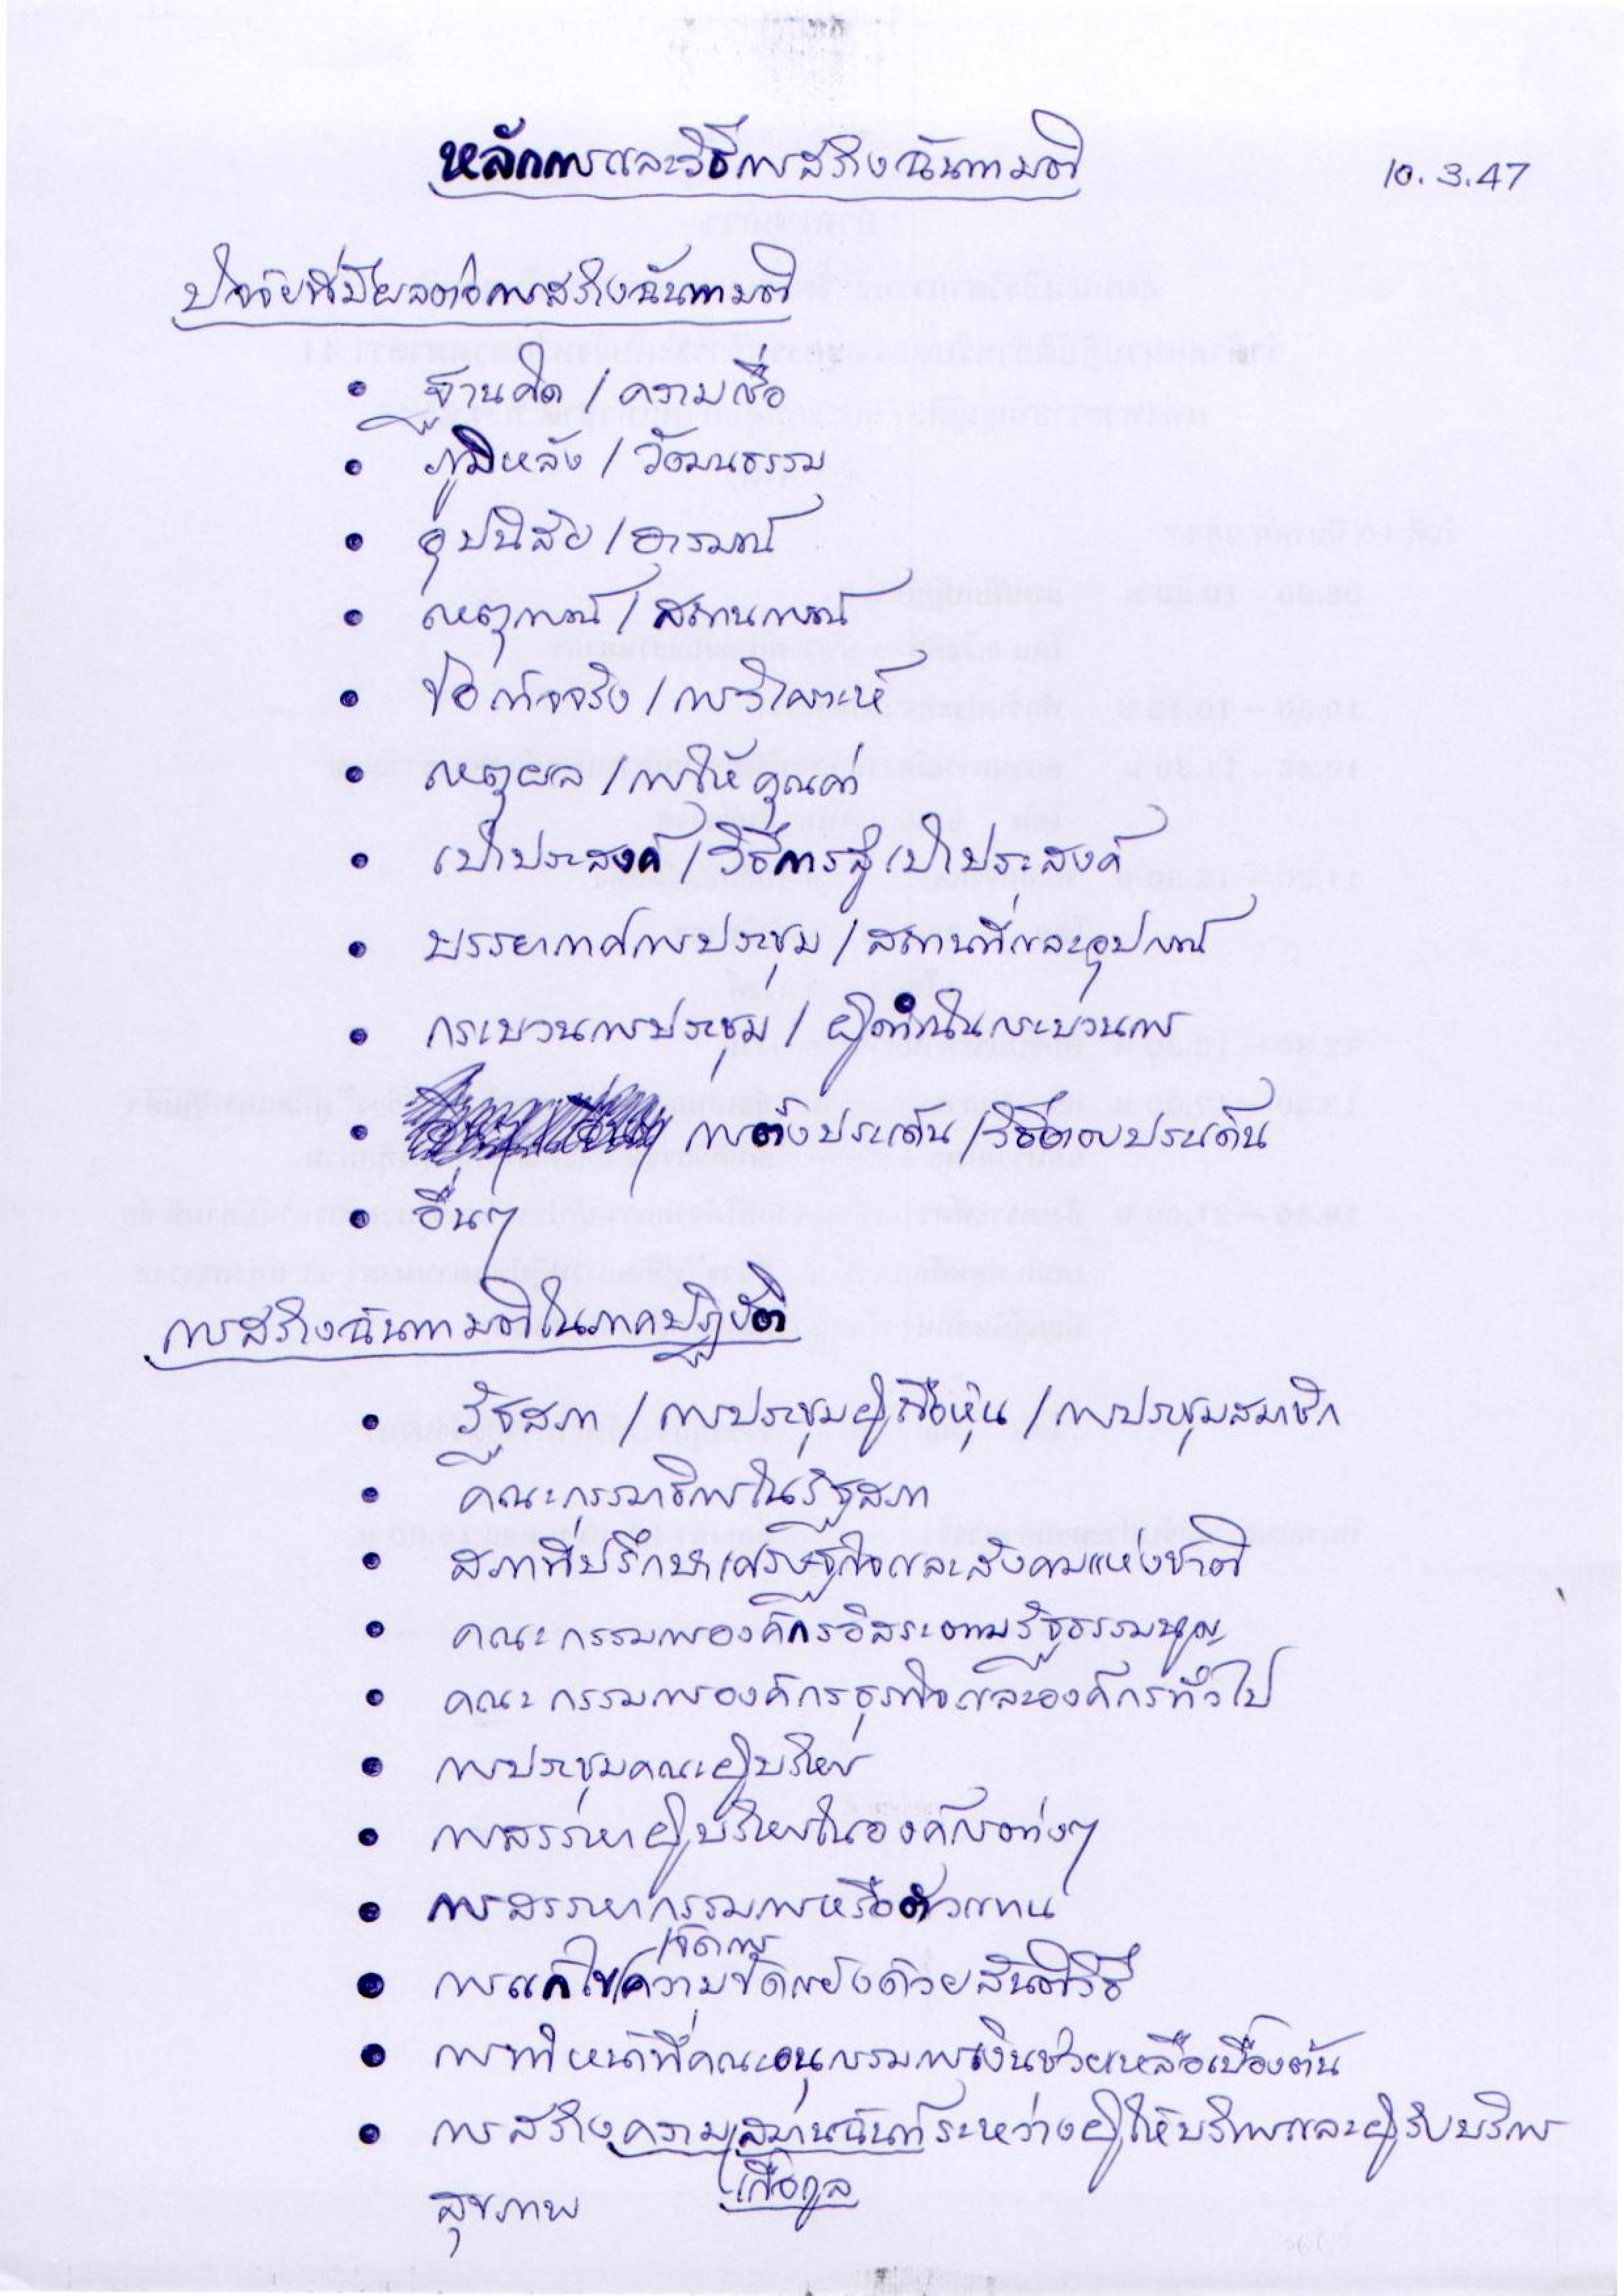 หลักการและวิธีการสร้างฉันทามติ
10.3.47
ปัจจัยที่มีผลต่อการสร้างฉันทามติ
• ฐานคิด / ความเชื่อ
• ภูมิหลัง / วัฒนธรรม
• อุปนิสัย / อารมณ์
• เหตุการณ์ / สถานการณ์
• ข้อเท็จจริง / การวิเคราะห์
• เหตุผล / การให้คุณค่า
• เป้าประสงค์ / วิธีการสู่เป้าประสงค์
• บรรยากาศการประชุม / สถานที่และอุปกรณ์
• กระบวนการประชุม / ผู้ดำเนินกระบวนการ
• การตั้งประเด็น / วิธีตอบประเด็น
• อื่นๆ
การสร้างฉันทามติในภาคปฏิบัติ
• รัฐสภา / การประชุมผู้ถือหุ้น / การประชุมสมาชิก
• คณะกรรมาธิการในรัฐสภา
• สภาที่ปรึกษาเศรษฐกิจและสังคมแห่งชาติ
• คณะกรรมการองค์กรอิสระตามรัฐธรรมนูญ
• คณะกรรมการองค์กรธุรกิจและองค์กรทั่วไป
• การประชุมคณะผู้บริหาร
• การสรรหาผู้บริหารในองค์กรต่างๆ
• การสรรหากรรมการหรือตัวแทน
/จัดการ
• การแก้ไขความขัดแย้งด้วยสันติวิธี
• การทำหน้าที่คณะอนุกรรมการเงินช่วยเหลือเบื้องต้น
• การสร้างความสมานฉันท์ระหว่างผู้ให้บริการและผู้รับบริการ
/เกื้อกูล
สุขภาพ